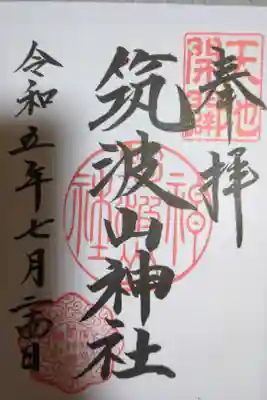 奉拝
天地開闢
筑波山神社
令和五年七月二四日